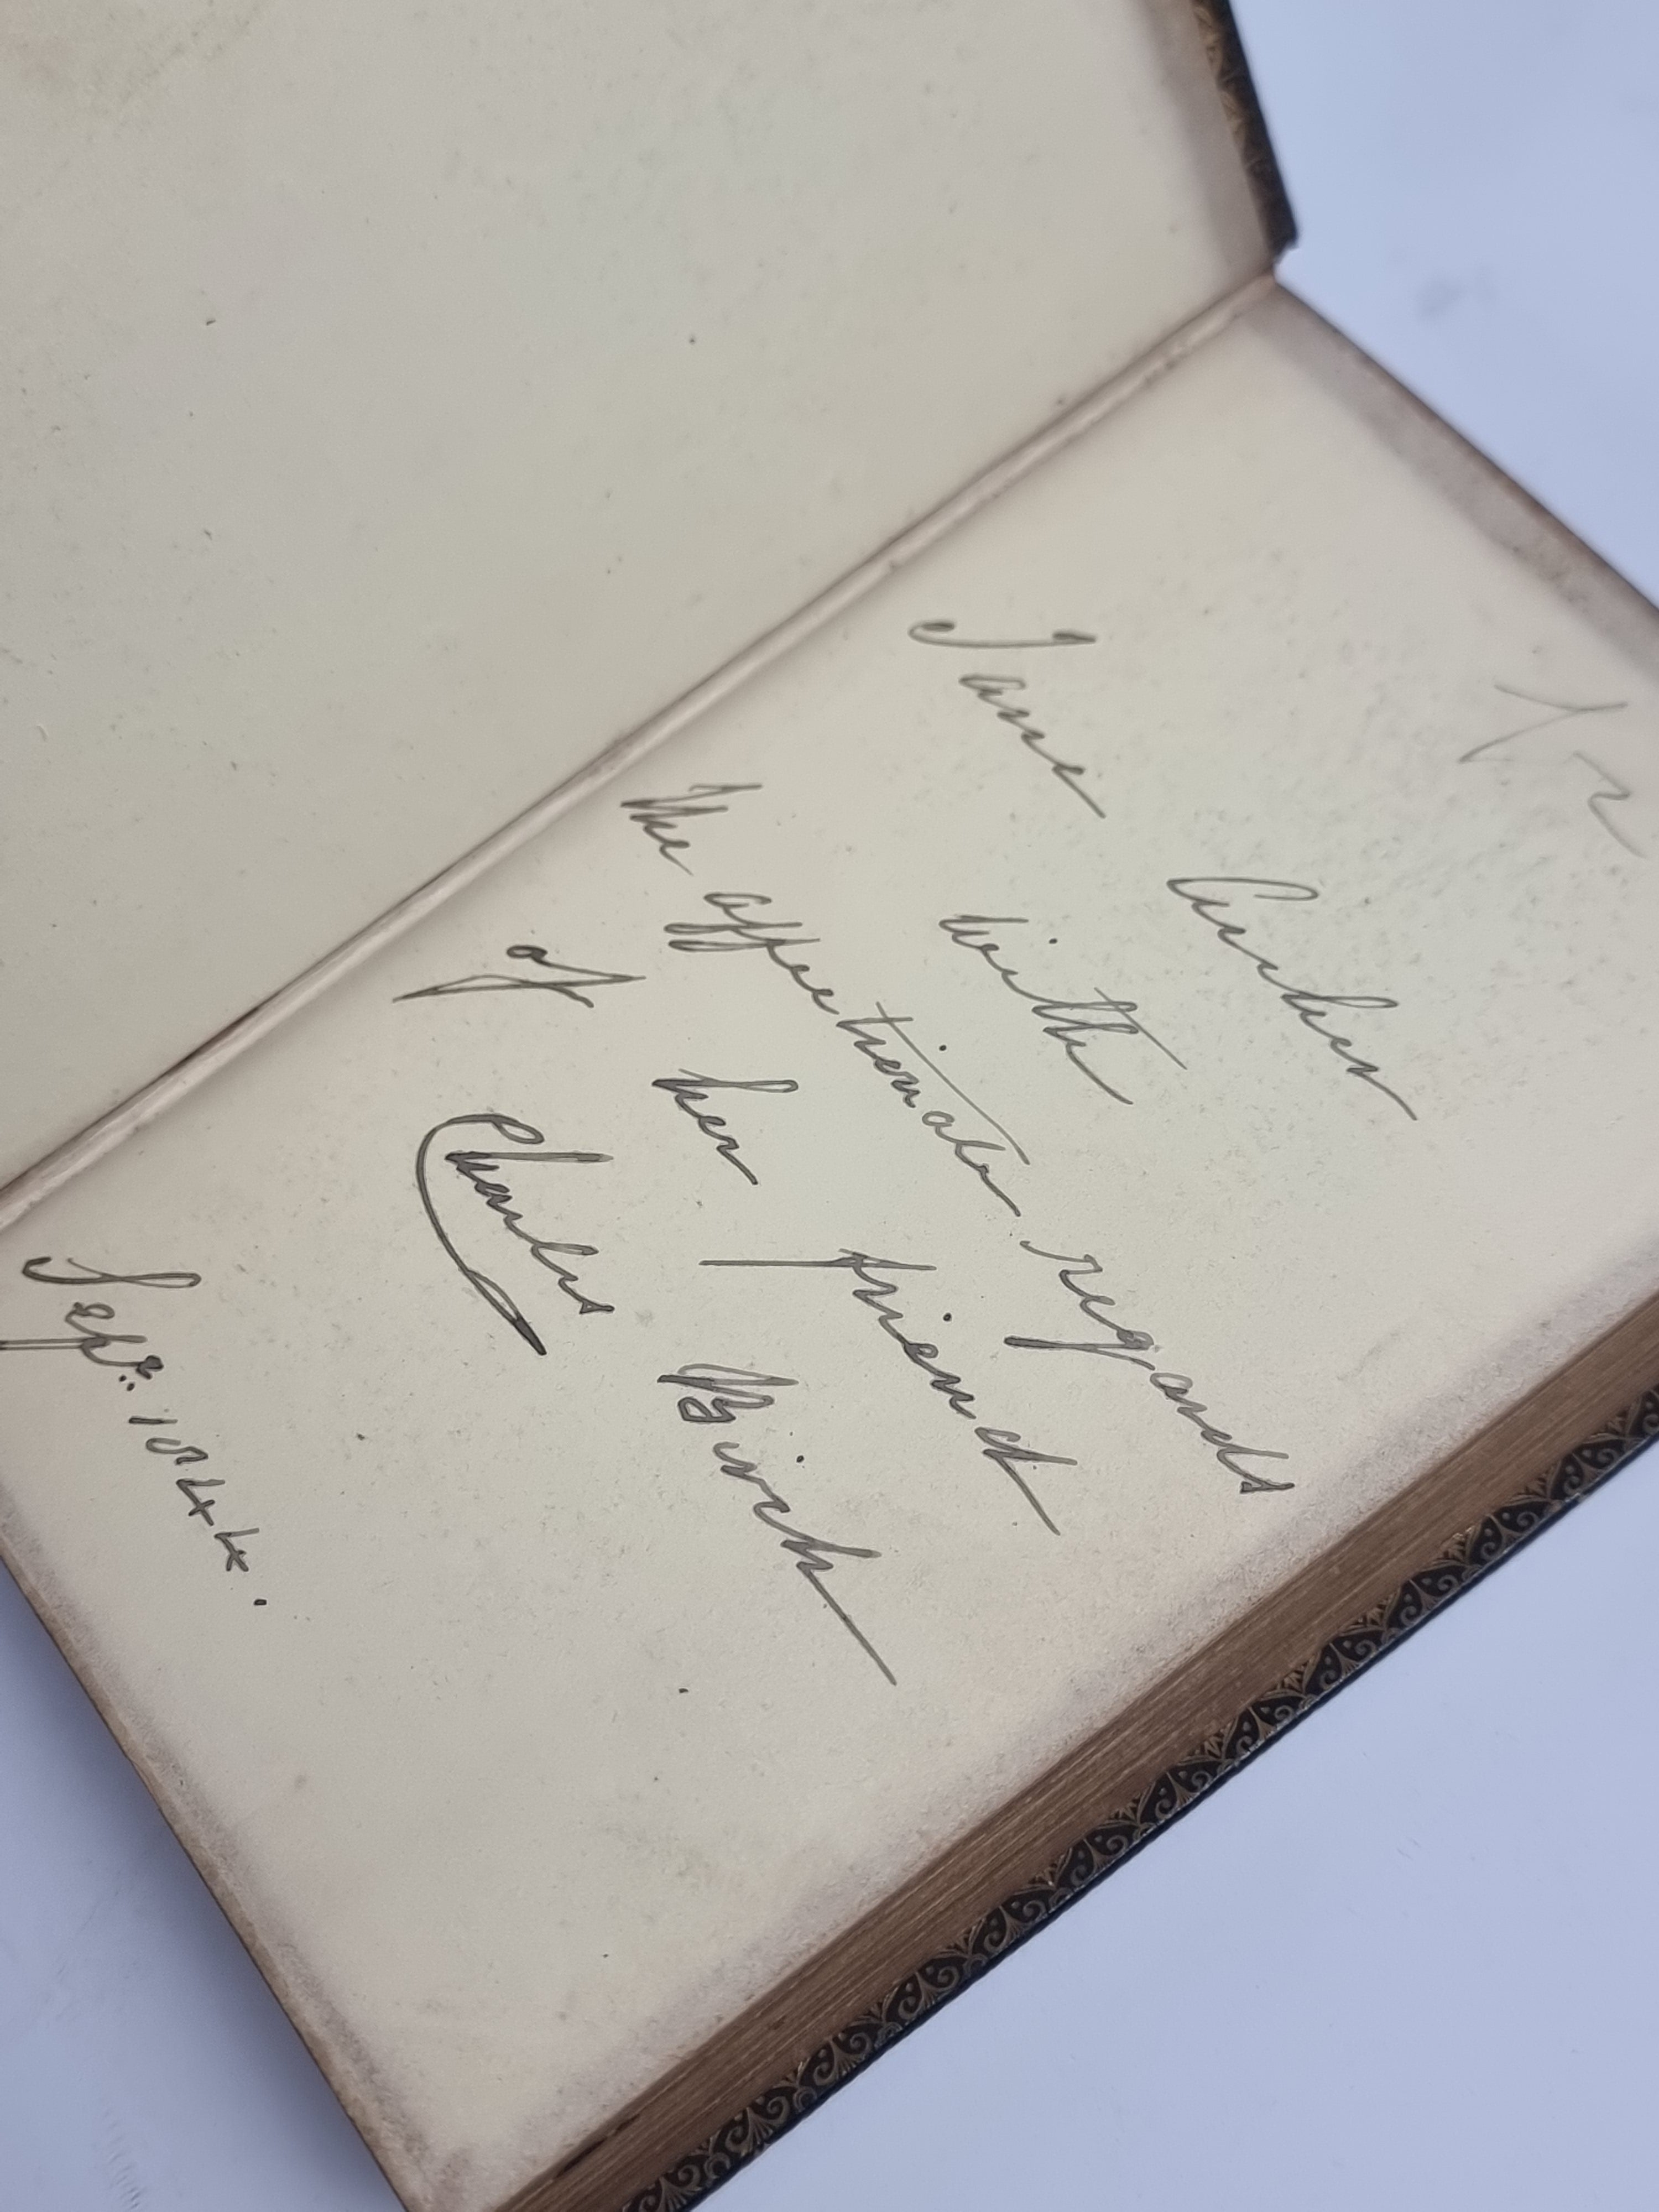 Jane Archer
with
the affectionate regards
of her friend
Charles Birch
Sepr. 1844.